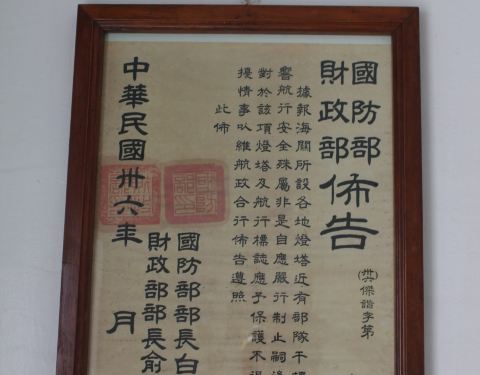 國防部
財政部
佈告
(卅六)傑諧字第
據報海關所設各地燈塔近有部隊干擾
響航行安全殊屬非是自應嚴行制止嗣後
對於該項燈塔及航行標誌應予保護不得
擾情事以維航政合行佈告遵照
此佈
國防部部長白
財政部部長俞
中華民國卅六年 月